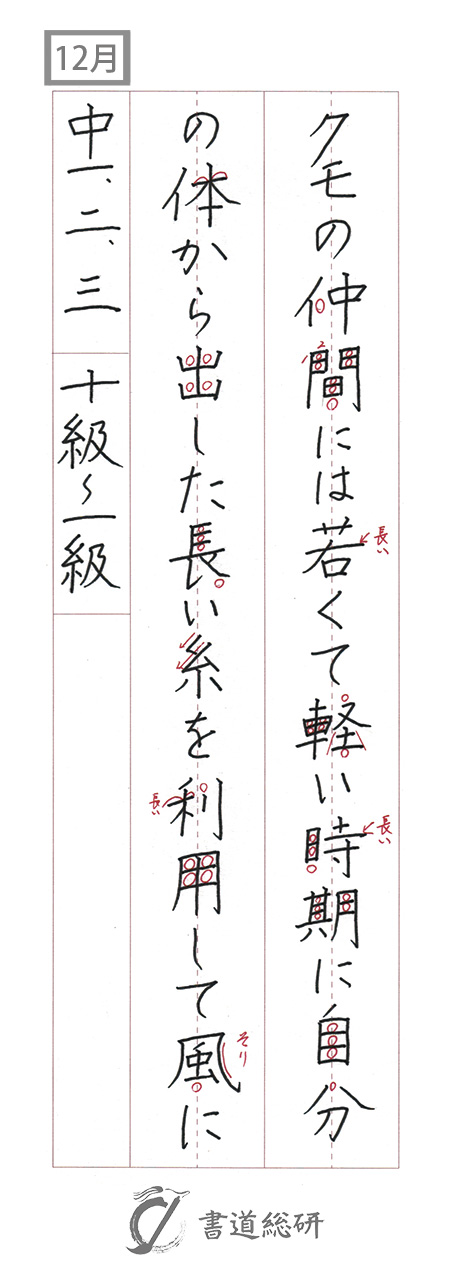 12月
クモの仲間には若くて軽い時期に自分
の体から出した長い糸を利用して風に
中一、二、三
十級〜一級
長い
長い
長い
そり
書道総研